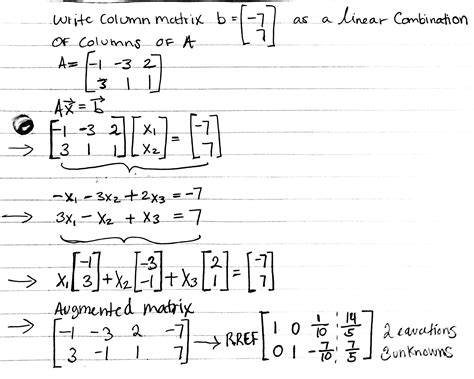 Write Column matrix b = [-7 7] as a linear Combination
OF Columns OF A
A = [-1 -3 2
3 1 1]
Ax⃗ = b⃗
→ [-1 -3 2 3 1 1] [x₁ x₂] = [-7 7]
-x₁ - 3x₂ + 2x₃ = -7
→ 3x₁ - x₂ + x₃ = 7
→ x₁[-1 3] + x₂[-3 -1] + x₃[2 1] = [-7 7]
Augmented matrix
→ [-1 -3 2 -7
3 -1 1 7] → RREF [1 0 1/10 14/5
0 1 -7/10 7/5] 2 equations
3 unknowns